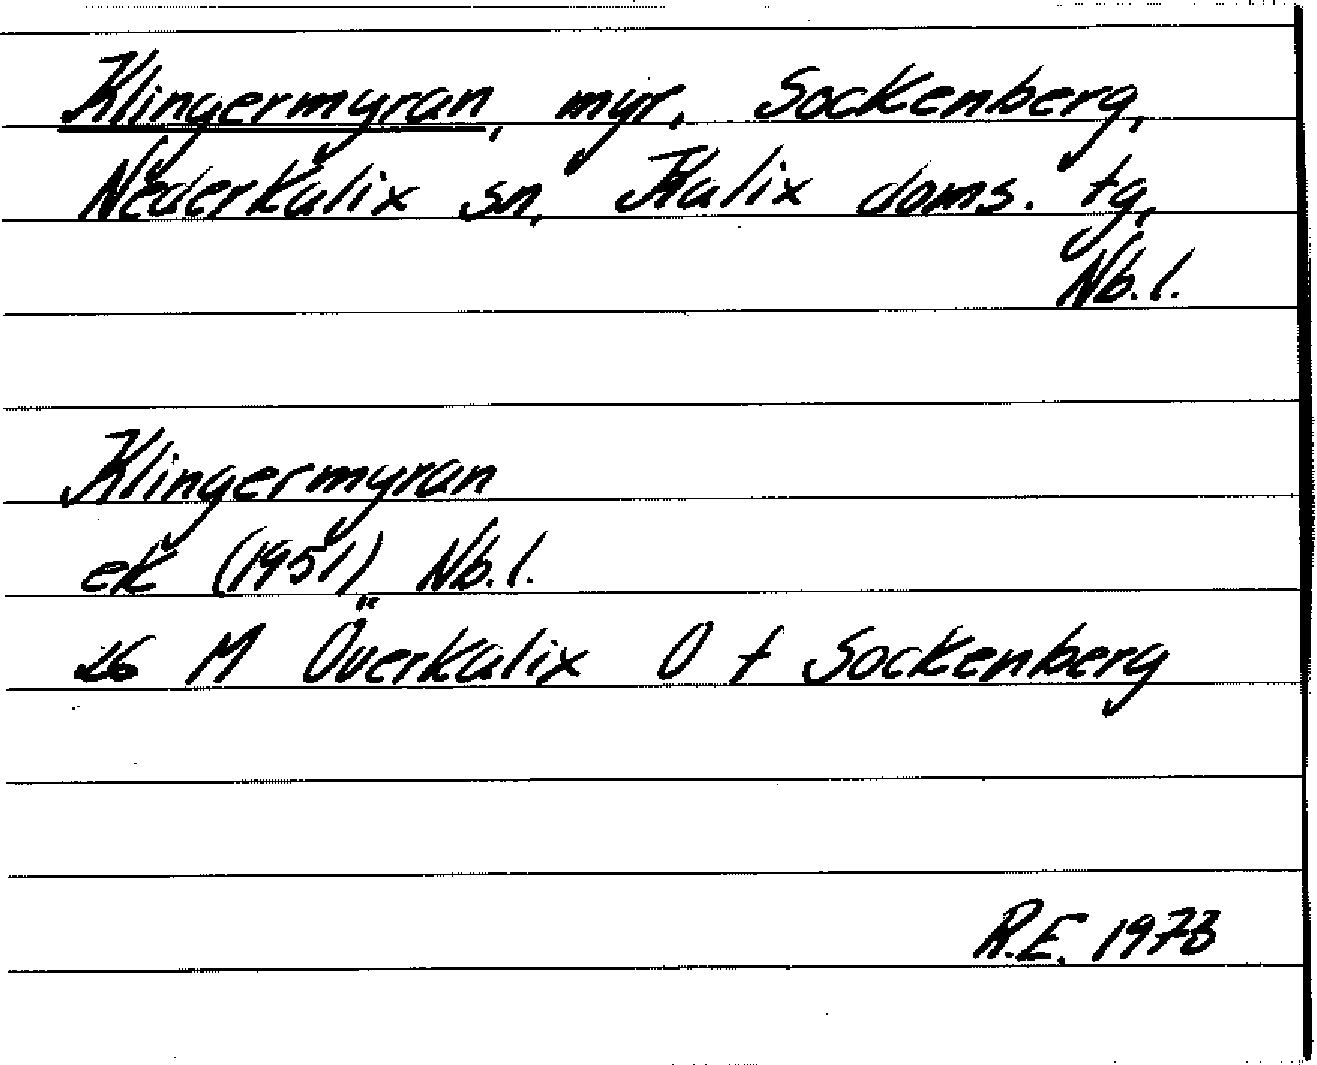 Klingermyran, myr, Sockenberg,
Nederkalix sn, Kalix doms. tg,
Nb.l.
Klingermyran
ek (1951) Nb.l.
26 M Överkalix O f Sockenberg
R.E. 1973